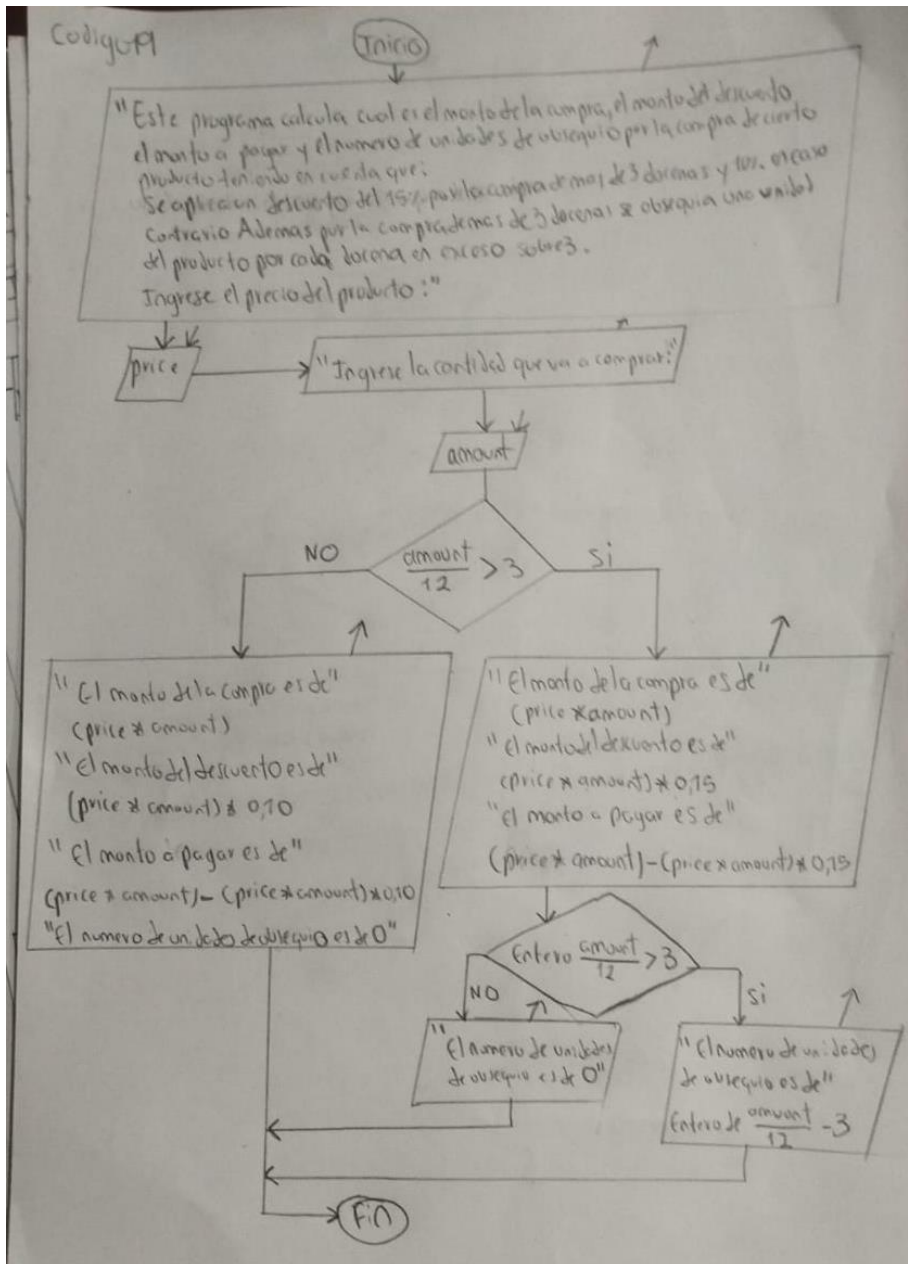 Codigo19
Inicio
"Este programa calcula cual es el monto de la compra, el monto del descuento,
el monto a pagar y el numero de unidades de obsequio por la compra de cierto
producto teniendo en cuenta que:
Se aplica un descuento del 15% por la compra de mas de 3 docenas y 10% en caso
contrario Ademas por la compra de mas de 3 docenas se obsequia una unidad
del producto por cada docena en exceso sobre 3.
Ingrese el precio del producto:"
price
"Ingrese la cantidad que va a comprar:"
amount
amount
12
> 3
NO
Si
"El monto de la compra es de"
(price * amount)
"El monto del descuento es de"
(price * amount) * 0,10
"El monto a pagar es de"
(price * amount) - (price * amount) * 0,10
"El numero de unidades de obsequio es de 0"
"El monto de la compra es de"
(price * amount)
"El monto del descuento es de"
(price * amount) * 0,15
"El monto a pagar es de"
(price * amount) - (price * amount) * 0,15
Entero amount
12
> 3
NO
Si
"El numero de unidades
de obsequio es de 0"
"El numero de unidades
de obsequio es de"
Entero de amount
12
- 3
Fin